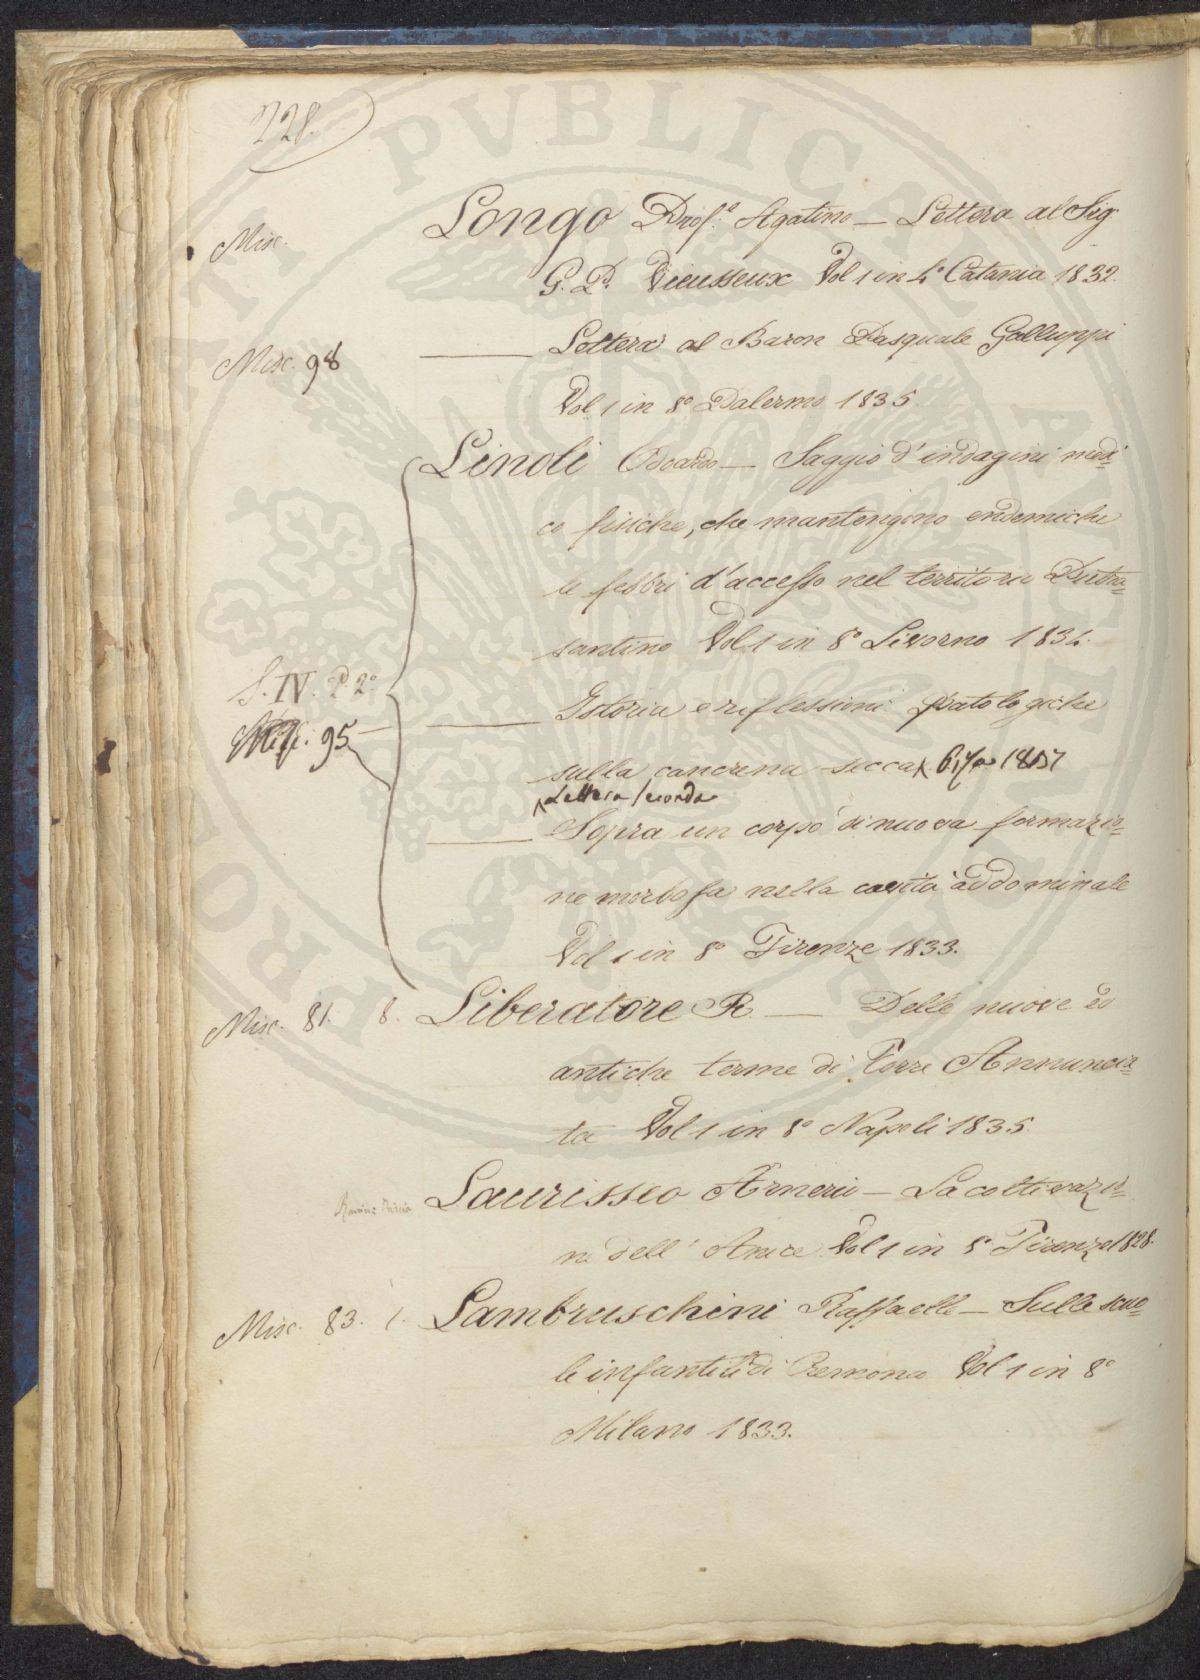 228.
Misc. Longo Prof.e Agatino — Lettera al Sig.
G. P. Vieusseux Vol 1 in 4° Catania 1832.
Misc. 98 — Lettera al Baron Pasquale Galluppi
Vol 1 in 8° Palermo 1835
Linoli Odoardo — Saggio d'indagini medi=
co fisiche, che mantengono endemiche
le febbri d'accesso nel territorio Pietra=
santino Vol 1 in 8° Livorno 1834.
S. IV. P. 2°
Misc. 95 — Istoria e riflessioni patologiche
sulla cancrena secca 1837
Lettera seconda
— Sopra un corpo di nuova formazio=
ne morbosa nella cavità addominale
Vol 1 in 8° Firenze 1833.
Misc. 81. 8. Liberatore R — Delle nuove ed
antiche terme di Torre Annuncia=
ta Vol 1 in 8° Napoli 1835
Laurisseo Arnerio — La coltivazio=
ne dell' Anice Vol 1 in 8° Firenze 1828.
Misc. 83. 1. Lambruschini Raffaelle — Sulle scuo=
le infantili di Cremona Vol 1 in 8°
Milano 1833.
PVBLICAE